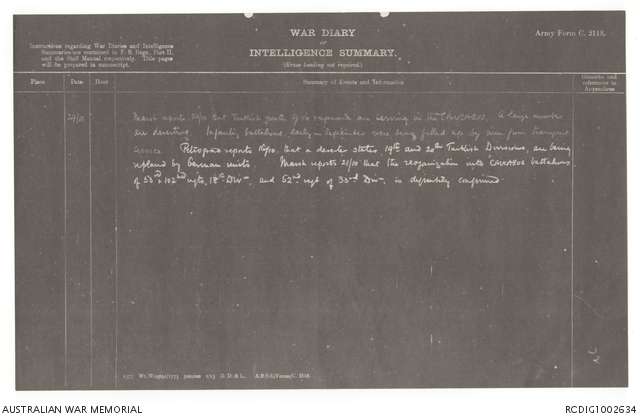 WAR DIARY
or
INTELLIGENCE SUMMARY.
(Erase heading not required.)
Army Form C. 2118.
Instructions regarding War Diaries and Intelligence
Summaries are contained in F. S. Regs., Part II.
and the Staff Manual respectively. Title pages
will be prepared in manuscript.
Place
Date
Hour
Summary of Events and Information
Remarks and
references to
Appendices
Marsh reports that Turkish are serving in the CAUCASUS. A large number
are deserting. Infantry battalions, early in September were being filled up by men from transport
service. Petrograd reports that a deserter states, 19th and 20th Turkish Divisions, are being
replaced by German units. Marsh reports 21/10 that the reorganization into CAUCASUS battalions
of 53rd & 102nd regts, 18th Divn, and 52nd regt of 33rd Divn, is definitely confirmed
AUSTRALIAN WAR MEMORIAL
RCDIG1002634